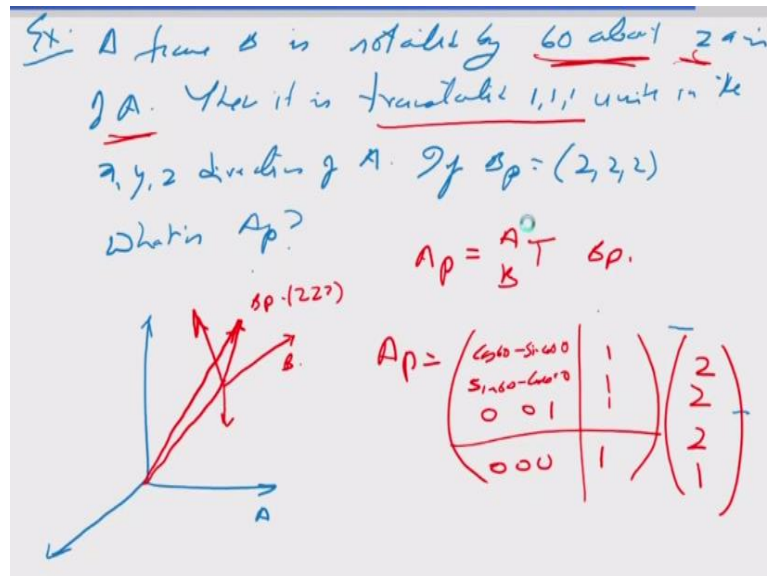 Ex: A frame B is rotated by 60 about z axis
of A. Then it is translated 1,1,1 units in the
x, y, z direction of A. If Bp = (2,2,2)
What is Ap?
Ap = A T Bp.
B
Bp.(222)
B.
A
Ap = ( cos60 -sin60 0 1 ) ( 2 )
sin60 -cos60 0 1 2
0 0 1 1 2
0 0 0 1 1